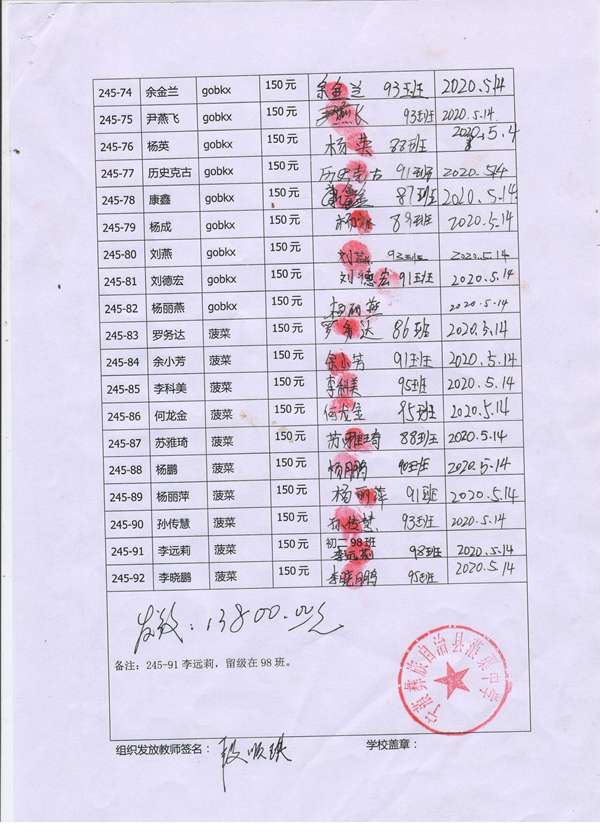 245-74 余金兰 gobkx 150元 余金兰 93班 2020.5.14
245-75 尹燕飞 gobkx 150元 尹燕飞 93班 2020.5.14
245-76 杨英 gobkx 150元 杨英 88班 2020.5.4
245-77 历史克古 gobkx 150元 历史克古 91班 2020.5.14
245-78 康鑫 gobkx 150元 康鑫 87班 2020.5.14
245-79 杨成 gobkx 150元 杨成 89班 2020.5.14
245-80 刘燕 gobkx 150元 刘燕 93班 2020.5.14
245-81 刘德宏 gobkx 150元 刘德宏 91班 2020.5.14
245-82 杨丽燕 gobkx 150元 杨丽燕 2020.5.14
245-83 罗务达 菠菜 150元 罗务达 86班 2020.5.14
245-84 余小芳 菠菜 150元 余小芳 91班 2020.5.14
245-85 李科美 菠菜 150元 李科美 95班 2020.5.14
245-86 何龙金 菠菜 150元 何龙金 85班 2020.5.14
245-87 苏雅琦 菠菜 150元 苏雅琦 88班 2020.5.14
245-88 杨鹏 菠菜 150元 杨鹏 90班 2020.5.14
245-89 杨丽萍 菠菜 150元 杨丽萍 91班 2020.5.14
245-90 孙传慧 菠菜 150元 孙传慧 93班 2020.5.14
245-91 李远莉 菠菜 150元 初二98班 李远莉 98班 2020.5.14
245-92 李晓鹏 菠菜 150元 李晓鹏 95班 2020.5.14
发放：13800.00元
备注：245-91 李远莉，留级在98班。
宁蒗彝族自治县
组织发放教师签名： 学校盖章：